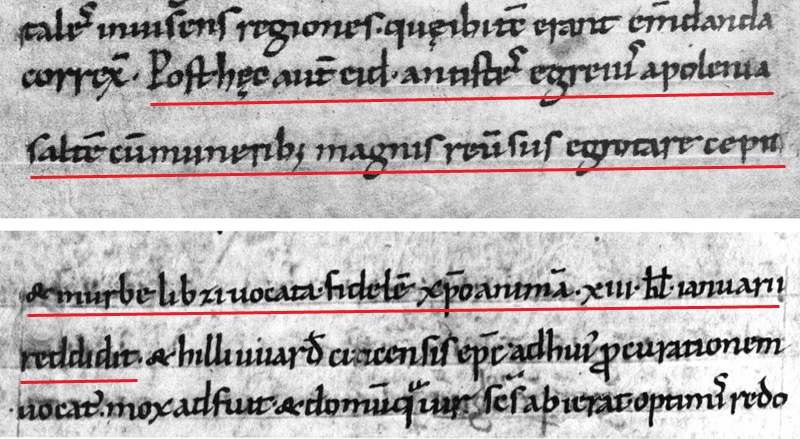 talēs inuisens regiones. quęibitē erant em̄danda
correx̄. Posthęc aut̄ eid. antistes᷒ egreiu᷒ apolenia
saltē cū muneribꝫ magnis reūsus egrotare cepit
& inurbe libzi uocata. fidelē xp̄o animā. xiii. kƚ. ianuarii
reddidit. & hilliuuard᷒ cicensis ep̄c adhui᷒ ꝓcurationem
uocat᷒. mox adfuit. & domū scs̄ abierat optim᷒ redo